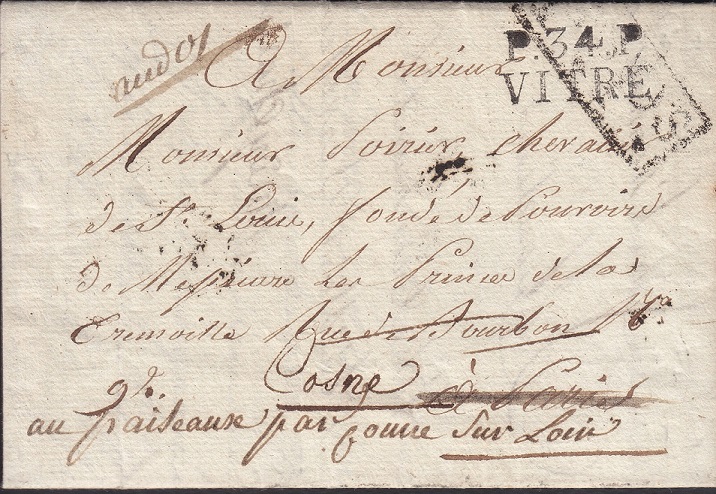 P.34.P.
VITRÉ
A Monsieur
Monsieur Poirier, chevalier
de St. Louis, fondé de Pouvoirs
de Messieurs Les Princes de la
Tremoille Rue de Bourbon
Cosne à Paris
au par Sur Loire